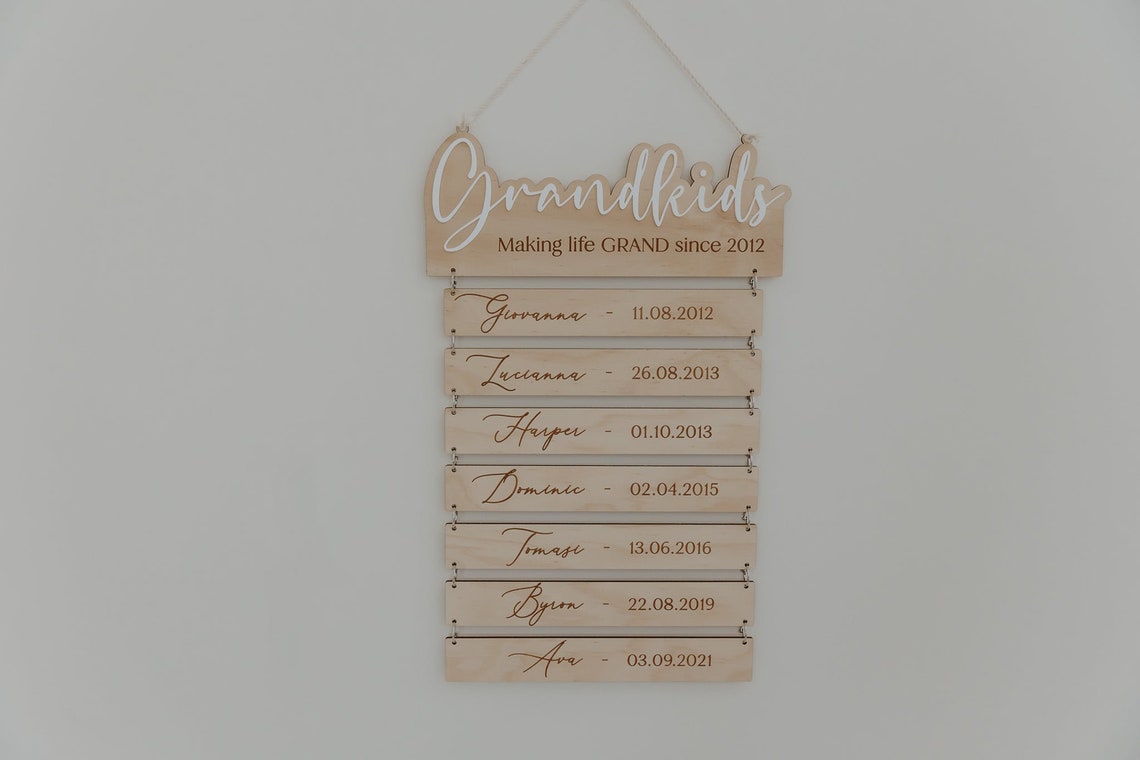 Grandkids
Making life GRAND since 2012
Giovanna - 11.08.2012
Lucianna - 26.08.2013
Harper - 01.10.2013
Dominic - 02.04.2015
Tomasi - 13.06.2016
Byron - 22.08.2019
Ava - 03.09.2021